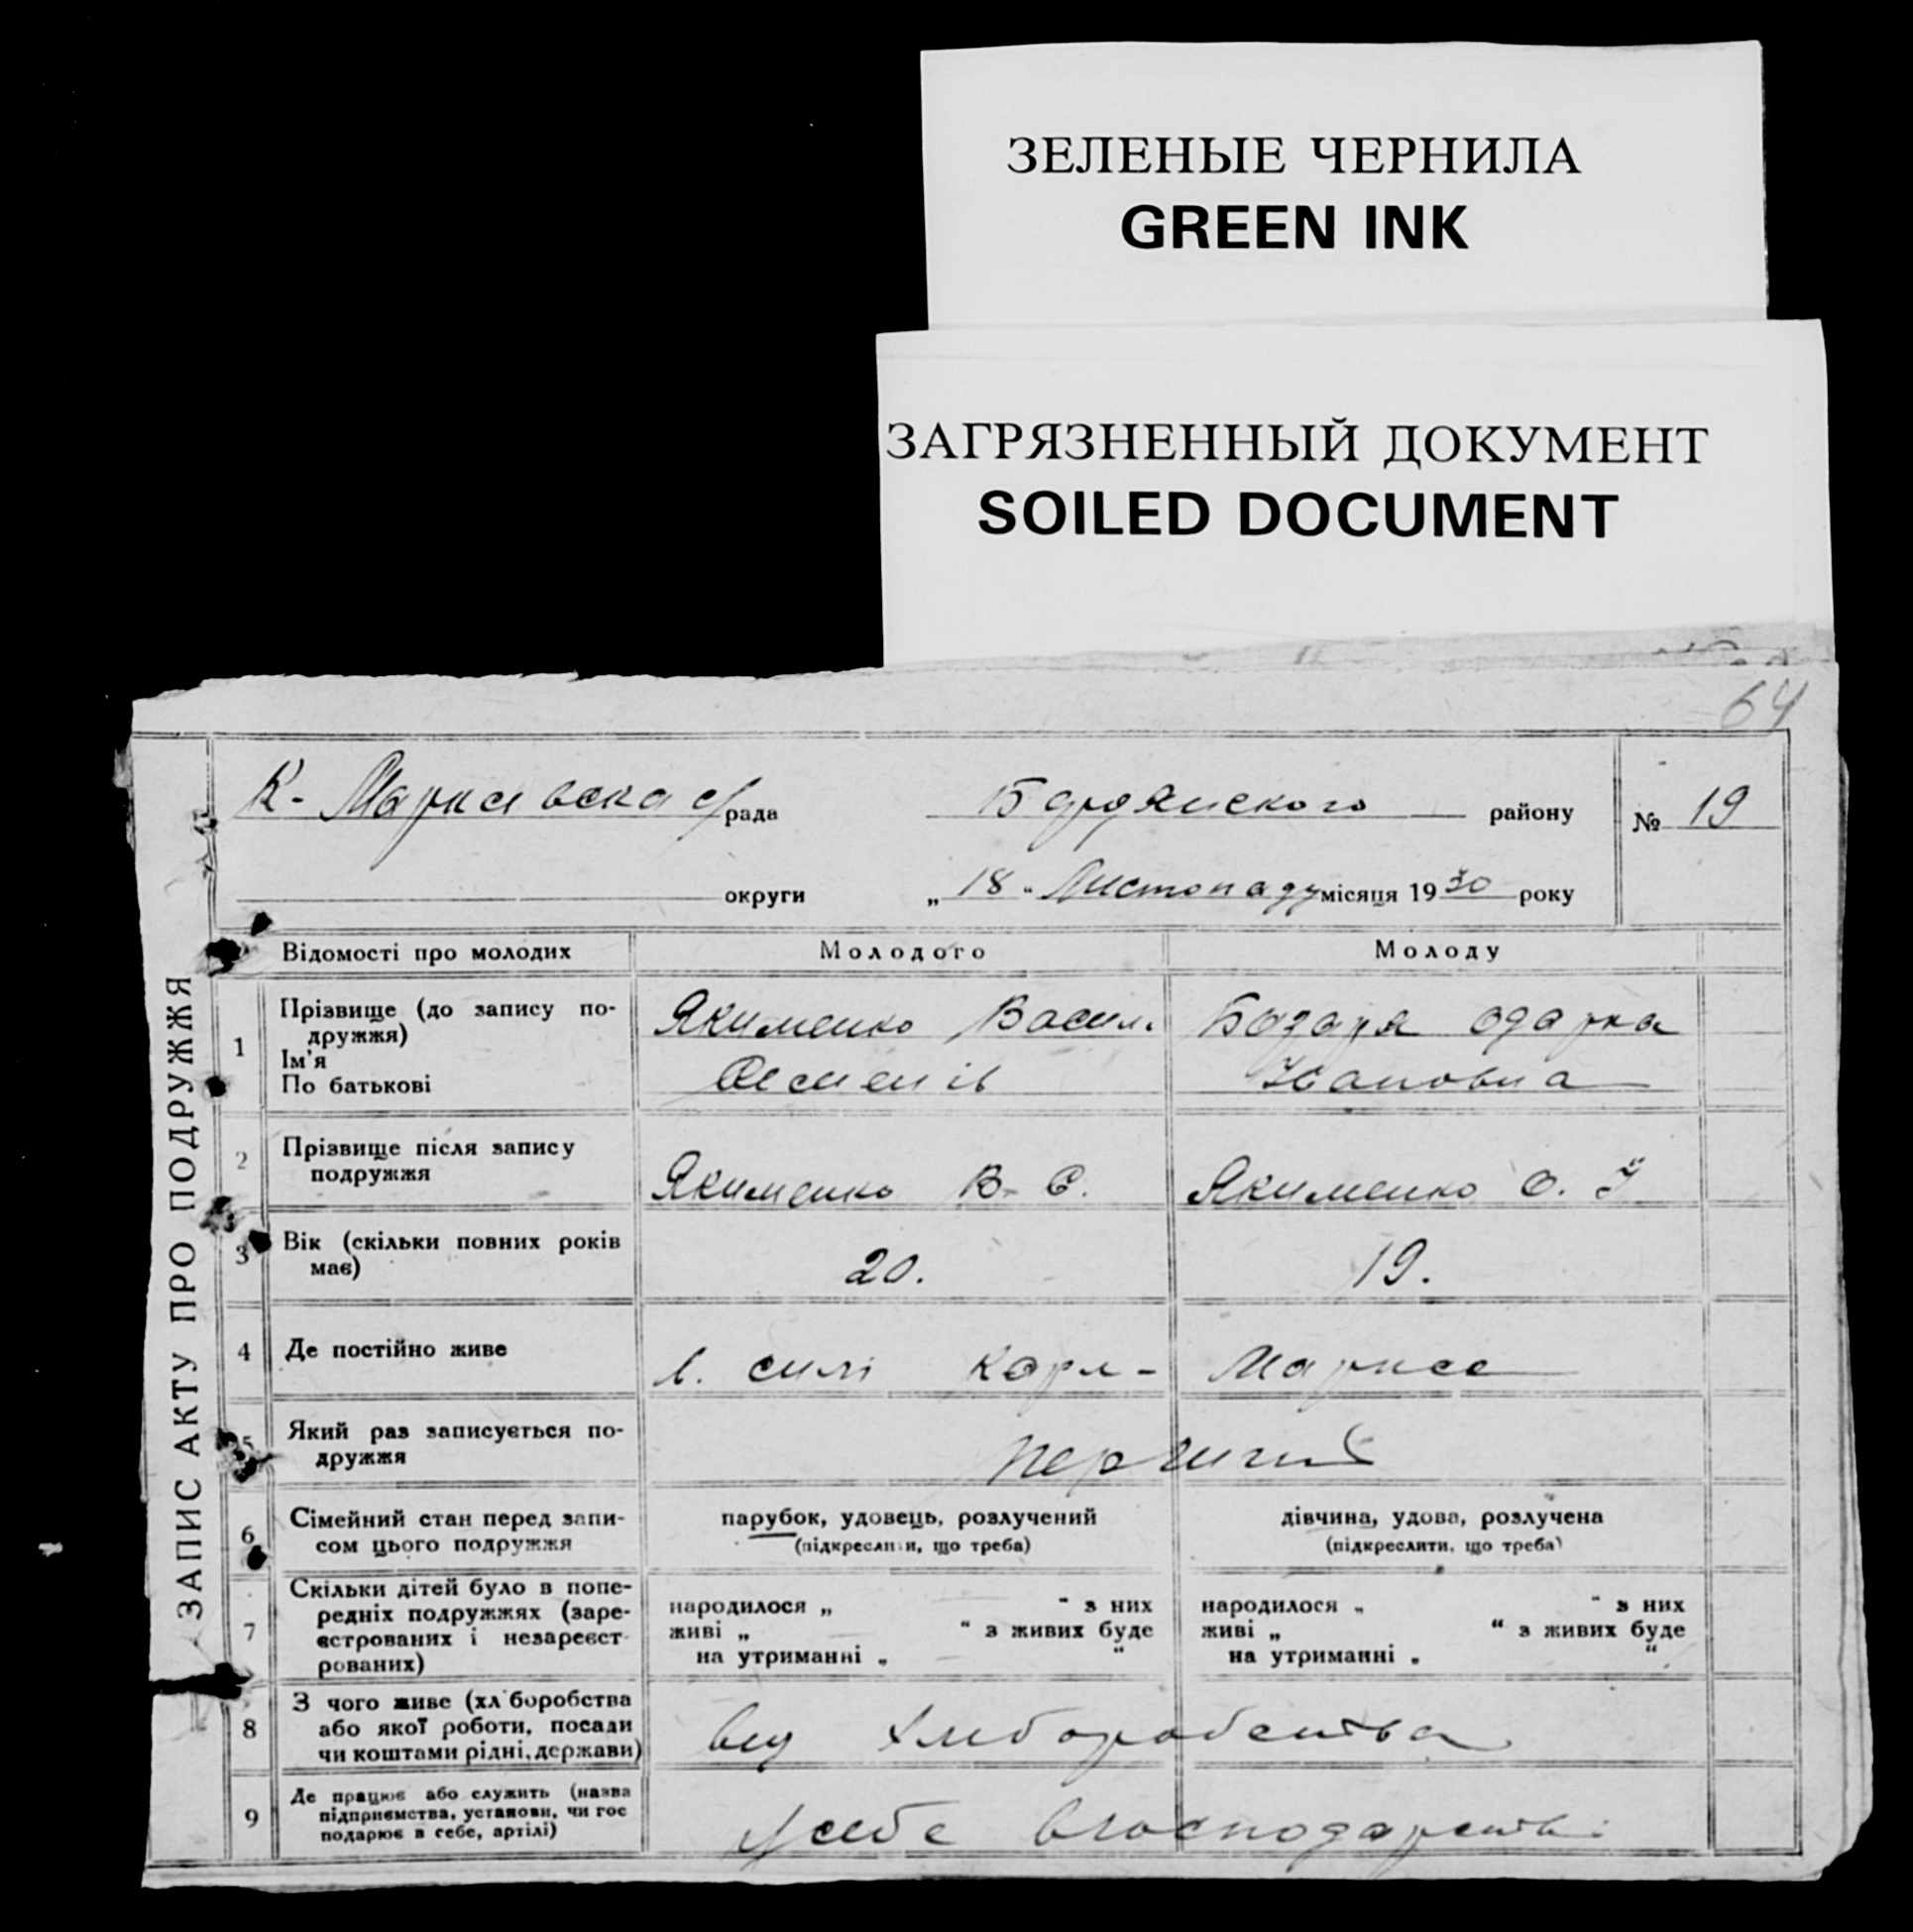 ЗЕЛЕНЫЕ ЧЕРНИЛА
GREEN INK
ЗАГРЯЗНЕННЫЙ ДОКУМЕНТ
SOILED DOCUMENT
64
ЗАПИС АКТУ ПРО ПОДРУЖЖЯ
К-Марксівска с/рада Бердянского району № 19
округи „18“ Листопаду місяця 1930 року
Відомості про молодих Молодого Молоду
1 Прізвище (до запису подружжя) Якименко Василь Бозаря Одарка
Ім'я
По батькові Івановна
2 Прізвище після запису подружжя Якименко В. С. Якименко О. Ї
3 Вік (скільки повних років має) 20. 19.
4 Де постійно живе в. силі Карл- Маркса
5 Який раз записується подружжя
6 Сімейний стан перед записом цього подружжя парубок, удовець, розлучений дівчина, удова, розлучена
(підкреслити, що треба) (підкреслити, що треба)
7 Скільки дітей було в попередніх подружжях (зареєстрованих і незареєстрованих) народилося „ “ з них народилося „ “ з них
живі „ “ з живих буде живі „ “ з живих буде
на утриманні „ “ на утриманні „ “
8 З чого живе (хліборобства або якої роботи, посади чи коштами рідні, держави) від хліборобства
9 Де працює або служить (назва підприємства, установи, чи господарює в себе, артілі) у себе в господарстві